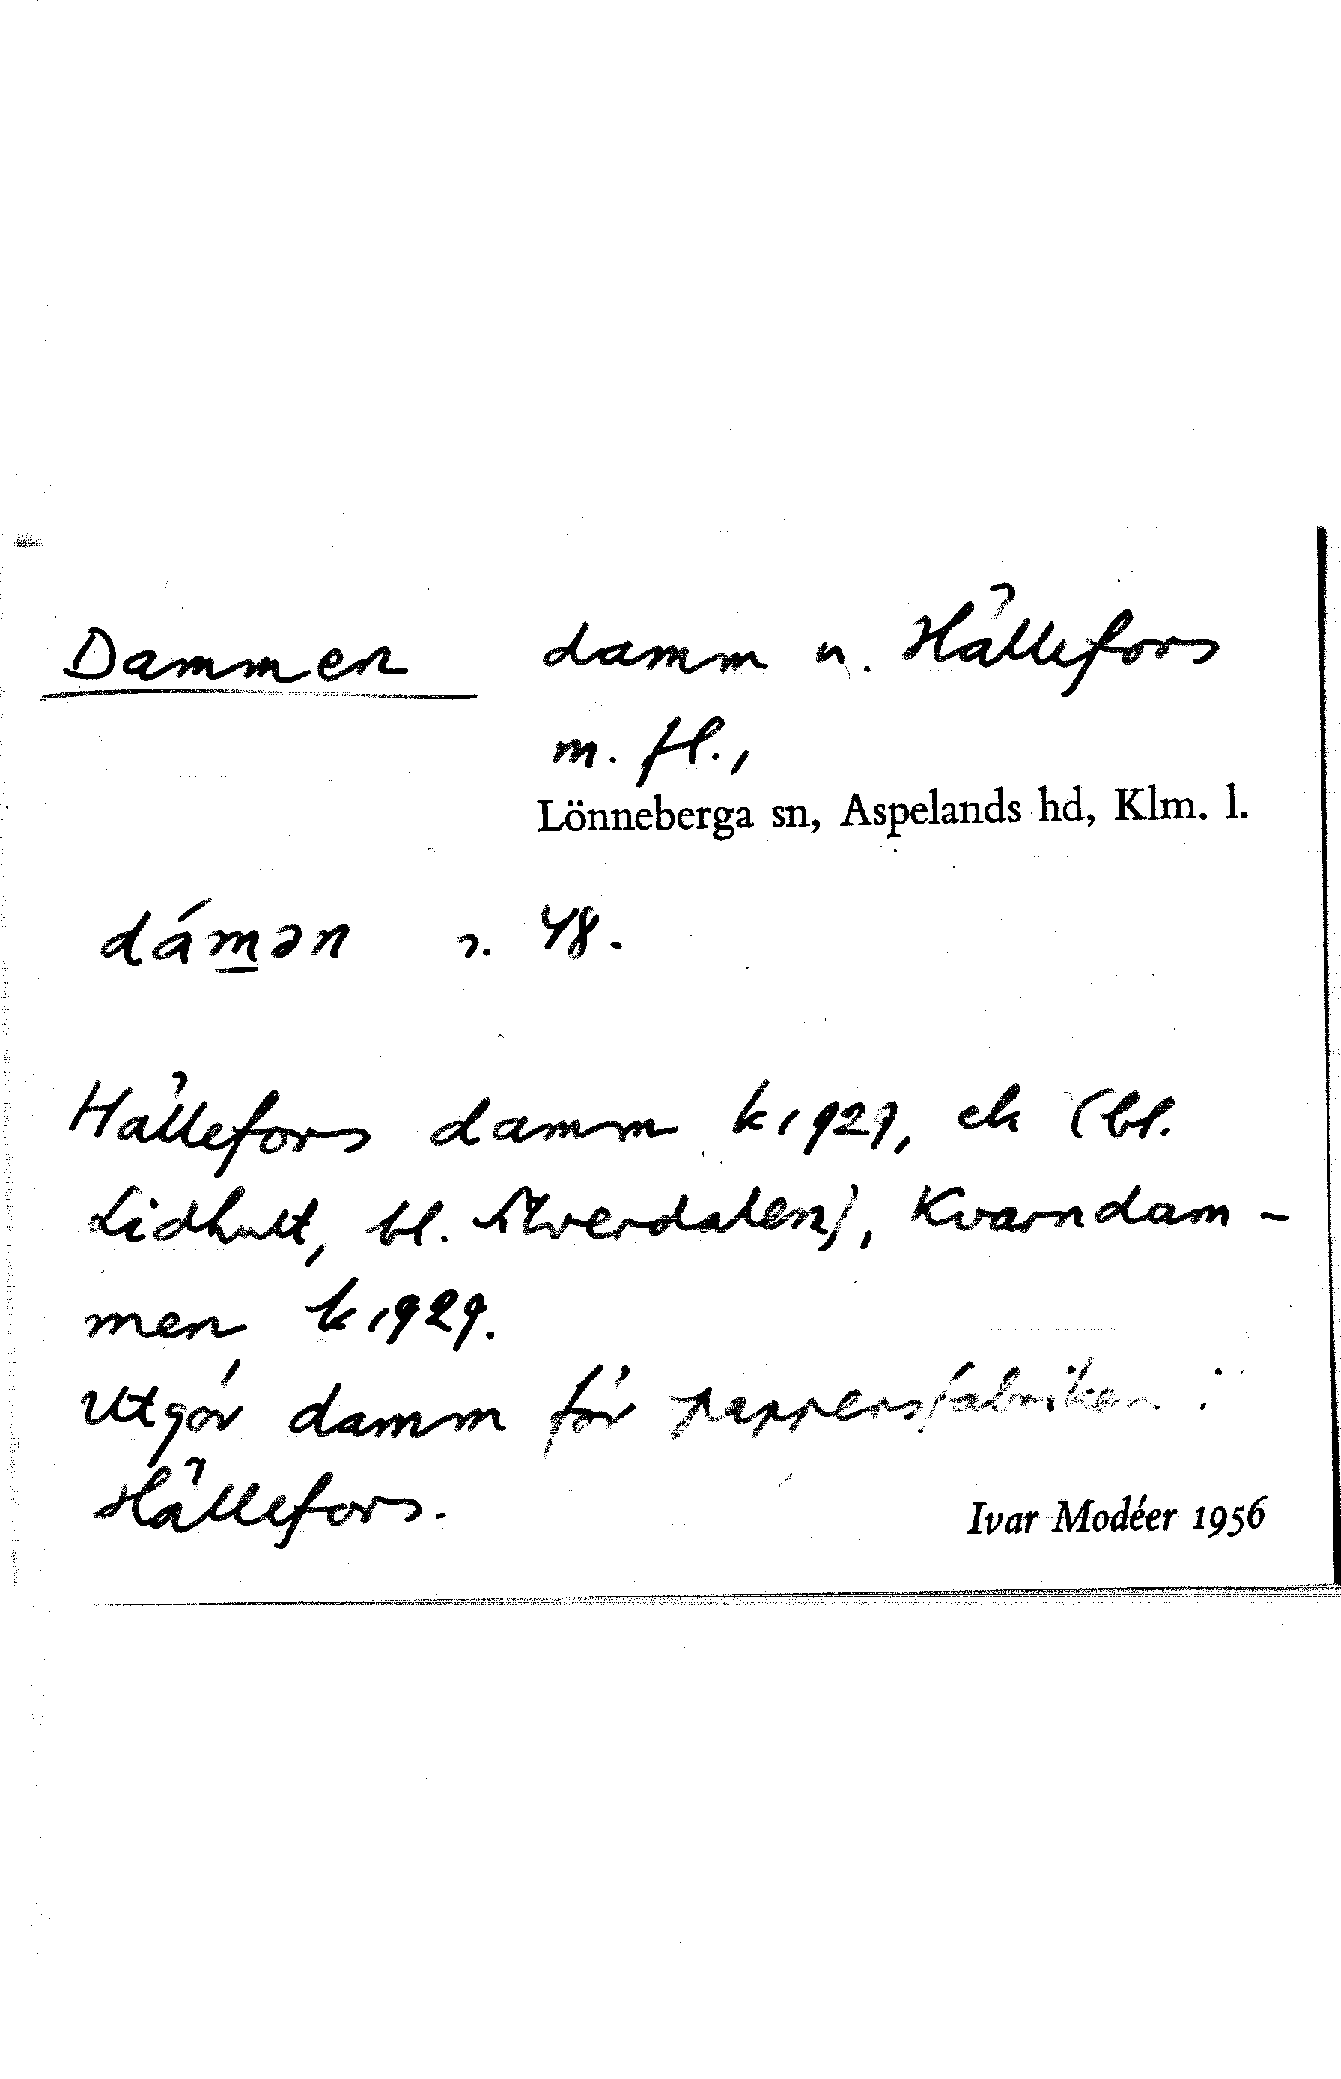 Dammen damm u. Hällefors
m. fl.,
Lönneberga sn, Aspelands hd, Klm. l.
dámən s. 48.
Hällefors damm k 1929, ek (bl.
Lidhult, bl. Silverdalen), Kvarndam-
men k 1929.
Utgör damm för pappersfabriken i
Hällefors.
Ivar Modéer 1956